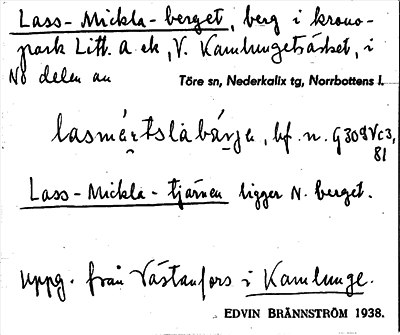 Lass-Mickla-berget, berg i krono-
park Litt. A ek, V. Kamlungeträsket, i
NÖ delen av Töre sn, Nederkalix tg, Norrbottens l.
lasmártslabárje, bf. n. G 309 Vc3,
81
Lass-Mickla-tjärnen ligger N. berget.
Uppg. från Västanfors i Kamlunge.
EDVIN BRÄNNSTRÖM 1938.